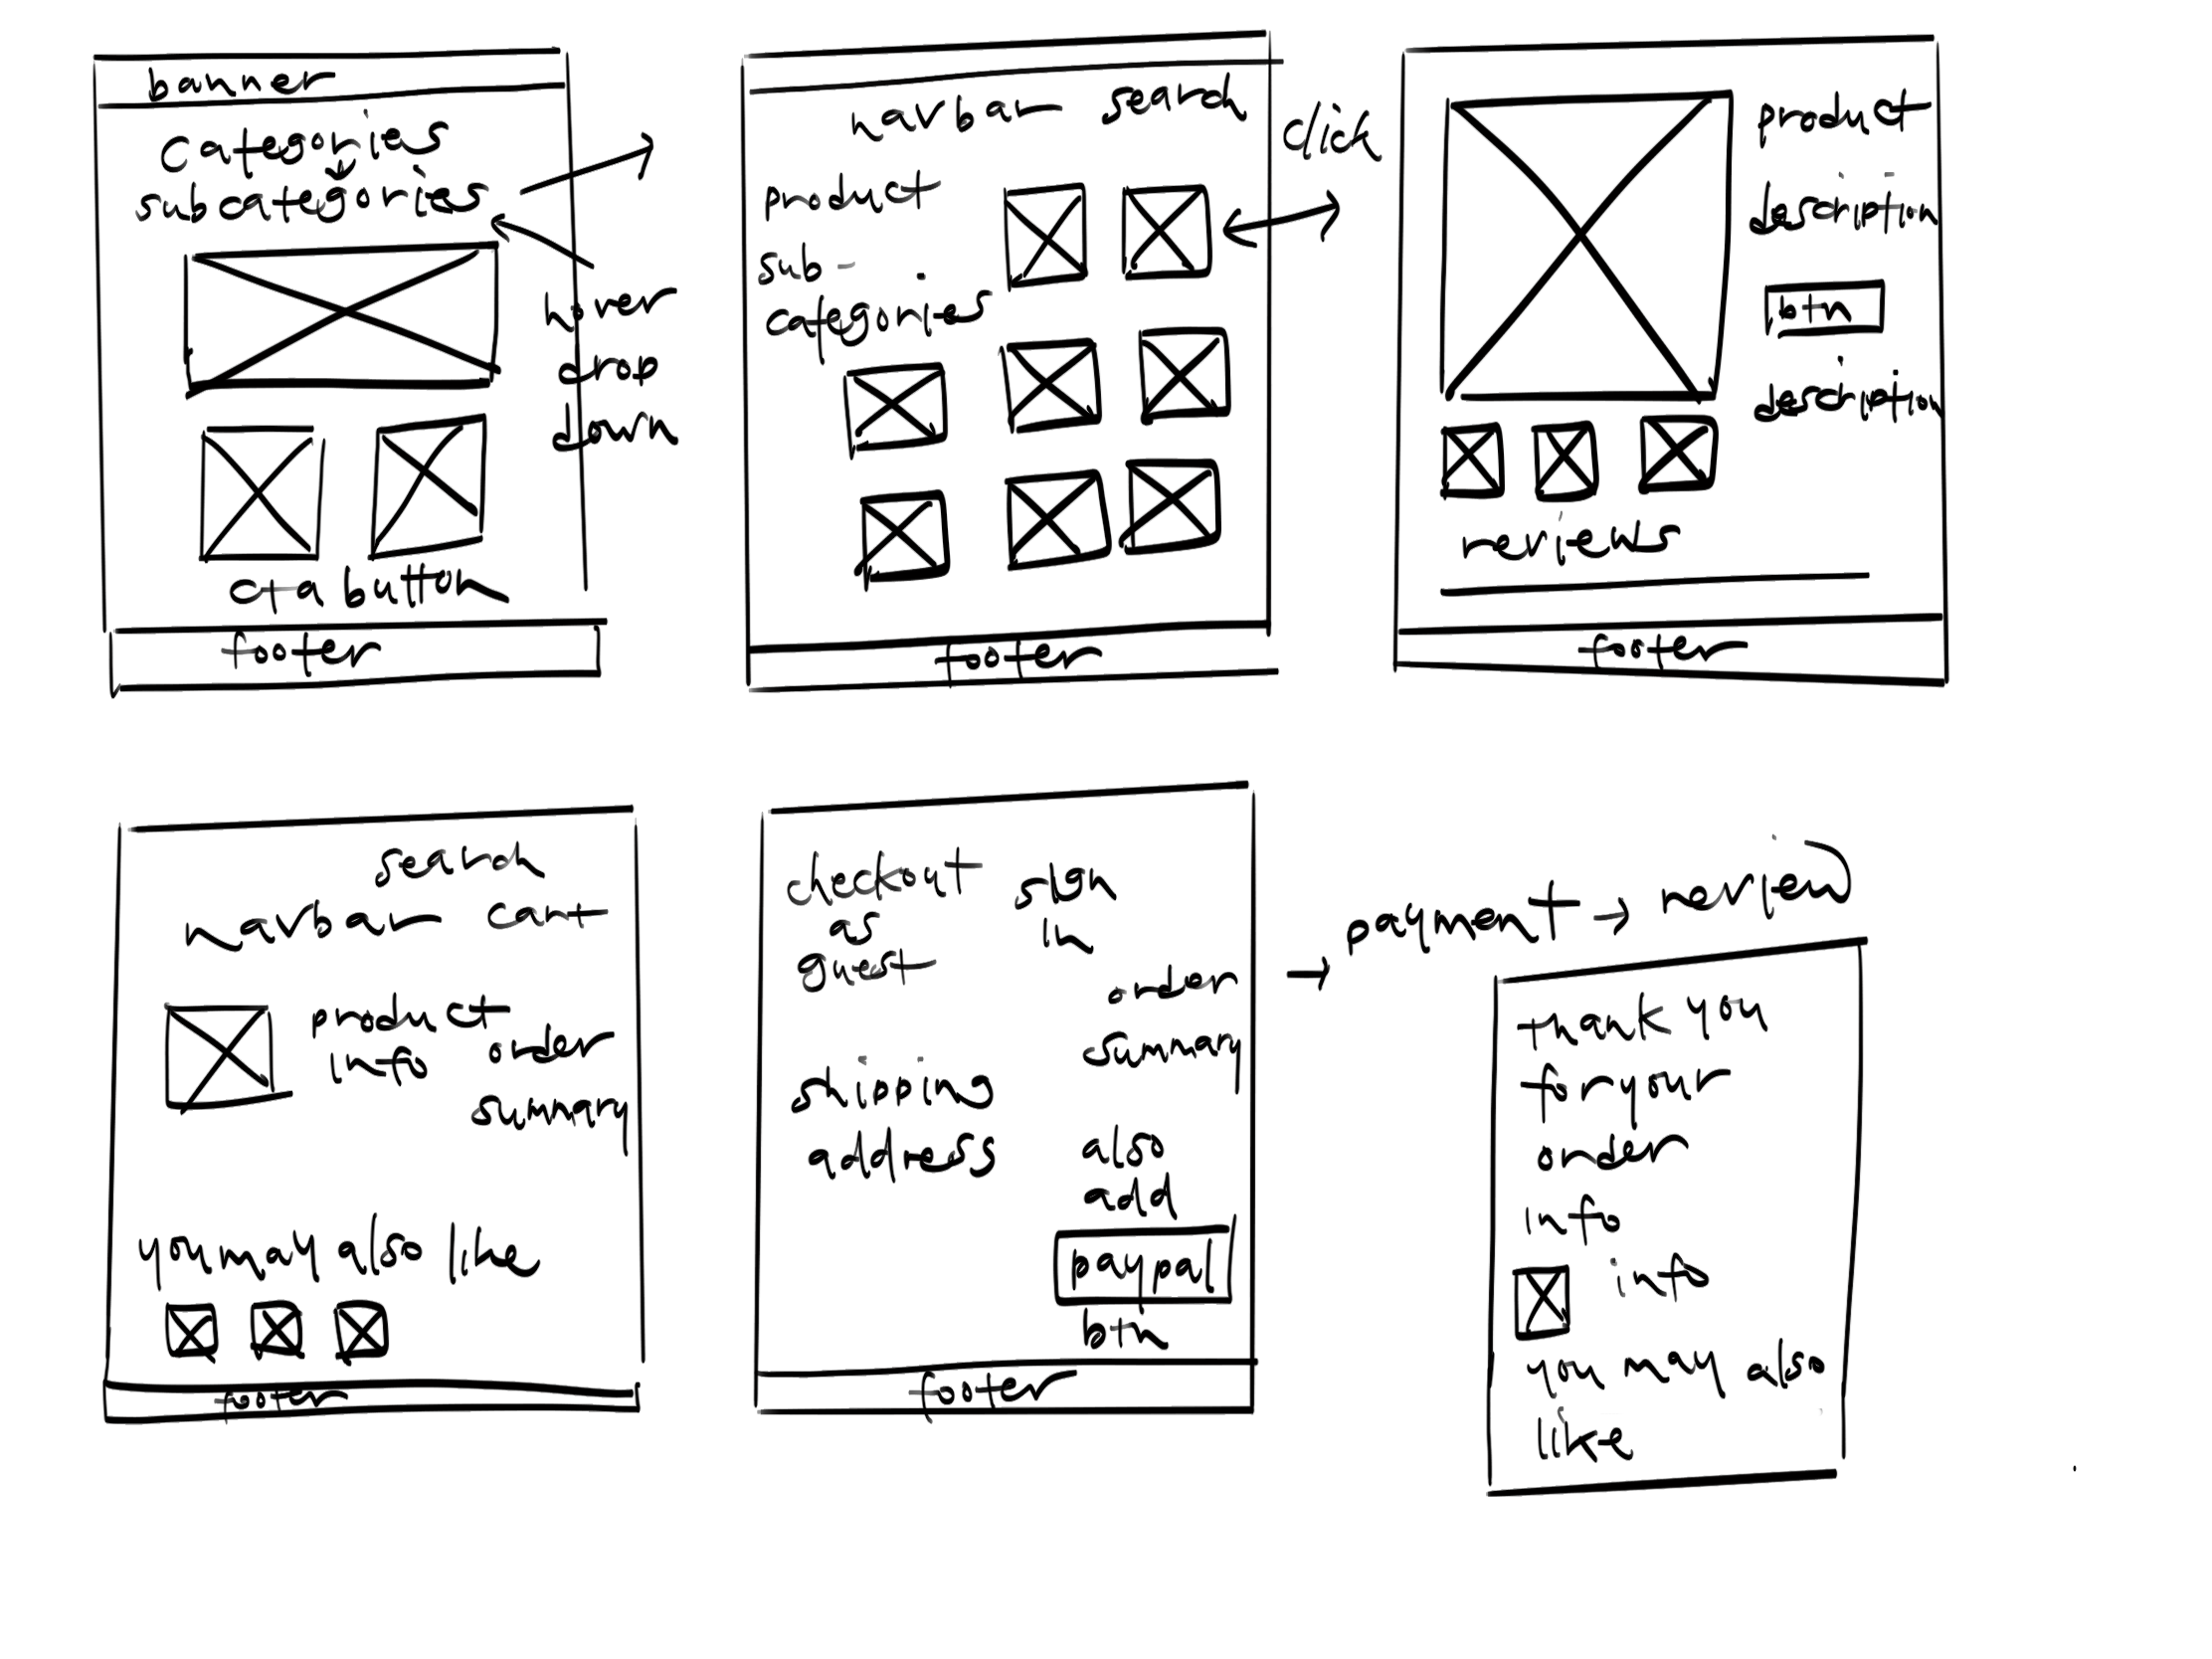 banner
categories
subcategories
hover
drop
down
cta button
footer
navbar search
product
sub-
categories
footer
click
product
description
btn
description
reviews
footer
search
navbar cart
product
info
order
summary
you may also like
footer
checkout
as
guest
sign
in
order
summary
shipping
address
also
add
paypal
btn
footer
→ payment → review
thank you
for your
order
info
info
you may also
like